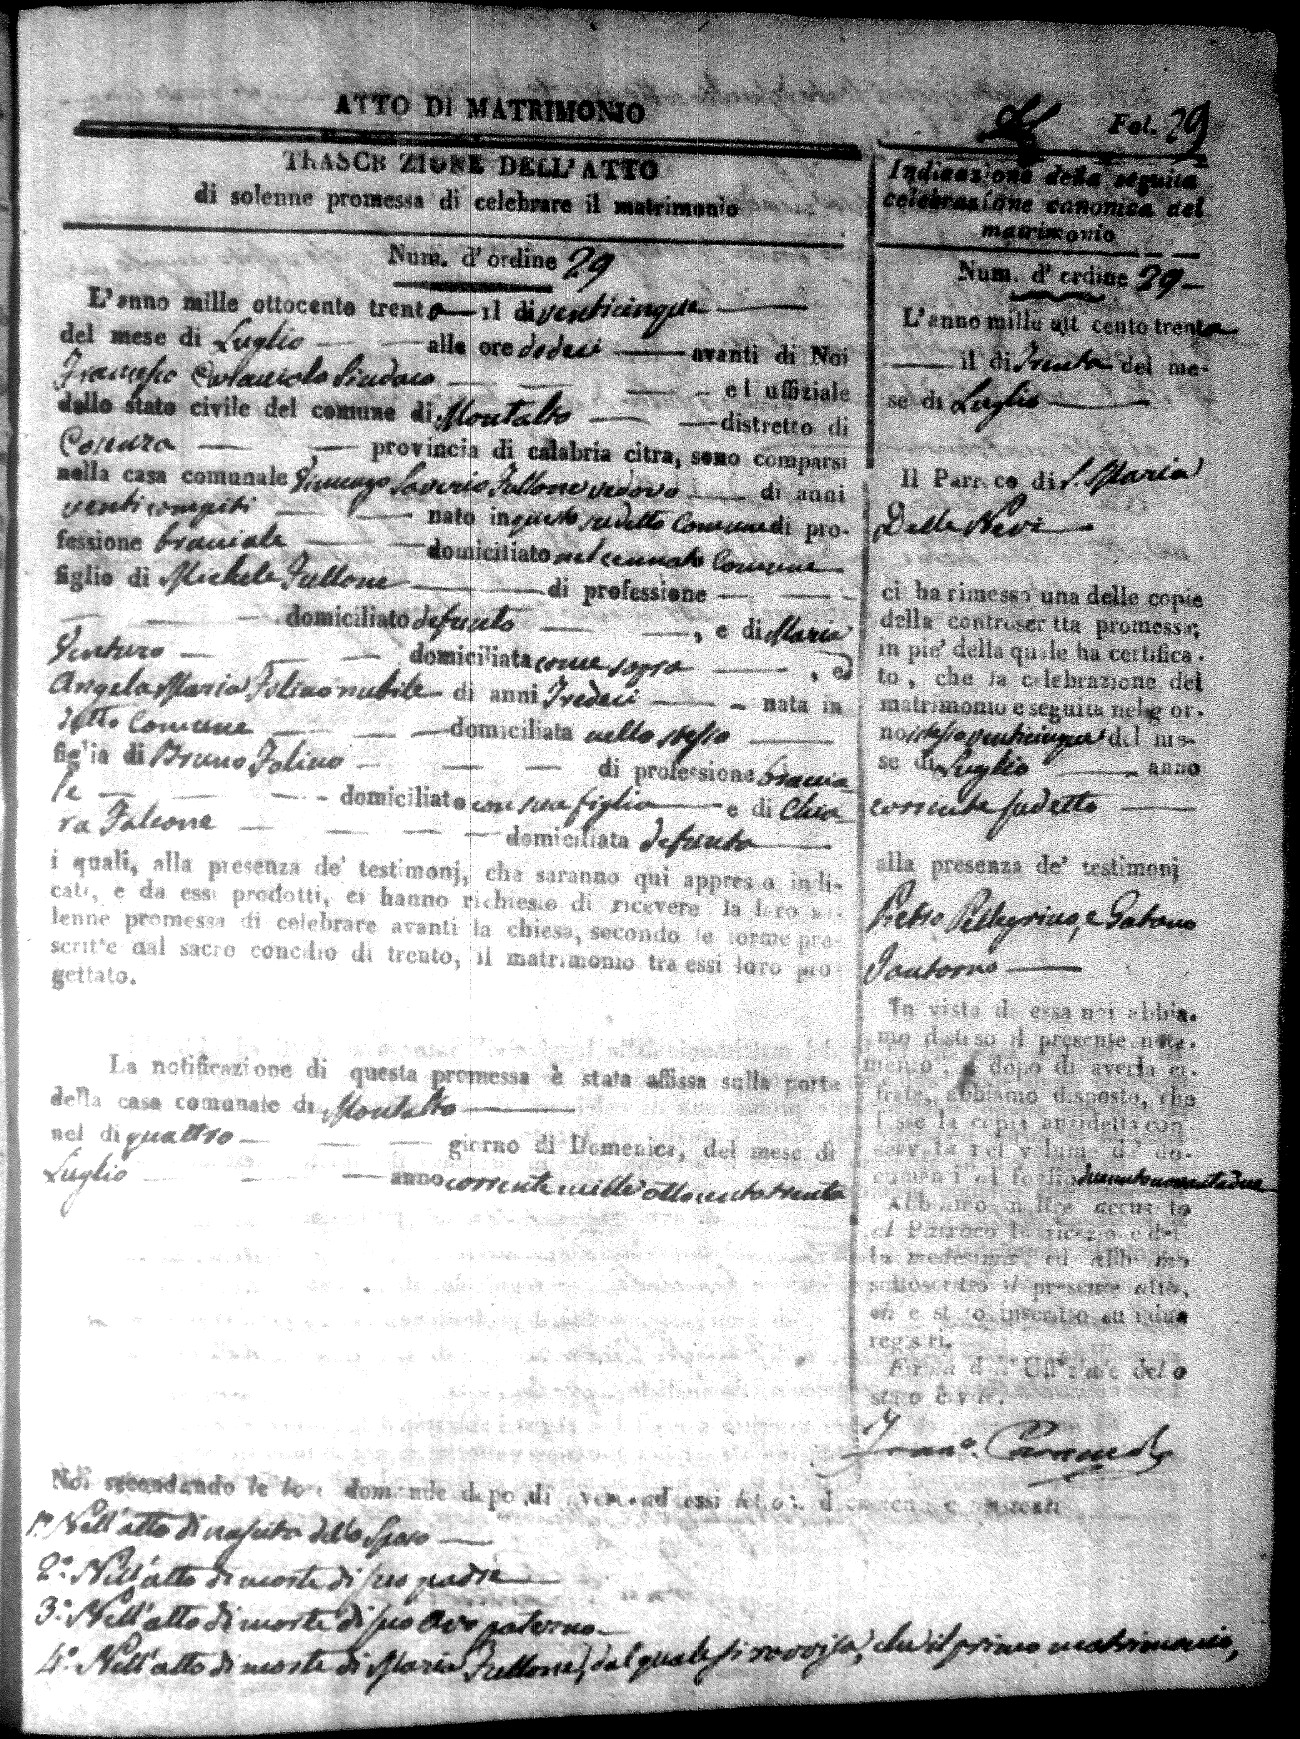 ATTO DI MATRIMONIO
Fol. 29
TRASCRIZIONE DELL'ATTO
di solenne promessa di celebrare il matrimonio
Num. d'ordine 29
L'anno mille ottocento trenta il dì venticinque
del mese di Luglio alle ore dodeci avanti di Noi
Francesco Sindaco ed uffiziale
dello stato civile del comune di Montalto distretto di
Cosenza provincia di calabria citra, sono comparsi
nella casa comunale Vincenzo Saverio Fullone vedovo di anni
venti compiti nato in questo sudetto Comune di pro-
fessione bracciale domiciliato nel cennato Comune
figlio di Michele Fullone di professione
domiciliato defunto , e di Maria
domiciliata come sopra , ed
Angela Maria Folino nubile di anni Tredeci nata in
detto Comune domiciliata nello stesso
figlia di Bruno Folino di professione braccia
le domiciliato con sua figlia e di Chia
ra Falcone domiciliata defunta
i quali, alla presenza de' testimonj, che saranno qui appresso indi-
cati, e da essi prodotti, ci hanno richiesto di ricevere la loro so-
lenne promessa di celebrare avanti la chiesa, secondo le forme pre-
scritte dal sacro concilio di trento, il matrimonio tra essi loro pro
gettato.
La notificazione di questa promessa è stata affissa sulla porta
della casa comunale di Montalto
nel dì quattro giorno di Domenica, del mese di
Luglio anno corrente mille ottocento trenta
Indicazione della seguita
celebrazione canonica del
matrimonio
Num. d'ordine 29
L'anno mille ott cento trenta
il dì Trenta del me-
se di Luglio
Il Parroco di S. Maria
Della Nevi
ci ha rimesso una delle copie
della controscritta promessa;
in piè della quale ha certifica-
to, che la celebrazione del
matrimonio e seguita nel gior-
no stesso venticinque del me-
se di Luglio anno
corrente sudetto
alla presenza de' testimonj
Pietro Pellegrino, e Gatano
Santoro
In vista di essa noi abbia-
mo disteso il presente nota-
mento, e dopo di averla ci-
frata, abbiamo disposto, che
sia la copia anzidetta con
servata nel volume de' do-
cumenti al foglio duecentonovantadue
Abbiamo in oltre accusato
al Parroco la ricezione del
la medesima, ed abbiamo
sottoscritto il presente atto,
ch'e stato inscritto su i due
registri.
Firma dell'Uffiziale dello
stato civile.
Noi secondando le loro domande dopo di aver ad essi letto i documenti
1º. Nell'atto di nascita dello Sposo
2º. Nell'atto di morte di suo padre
3º. Nell'atto di morte di suo Avo paterno
4º. Nell'atto di morte di Maria Fullone, dal quale si rovvisa, che il primo matrimonio,